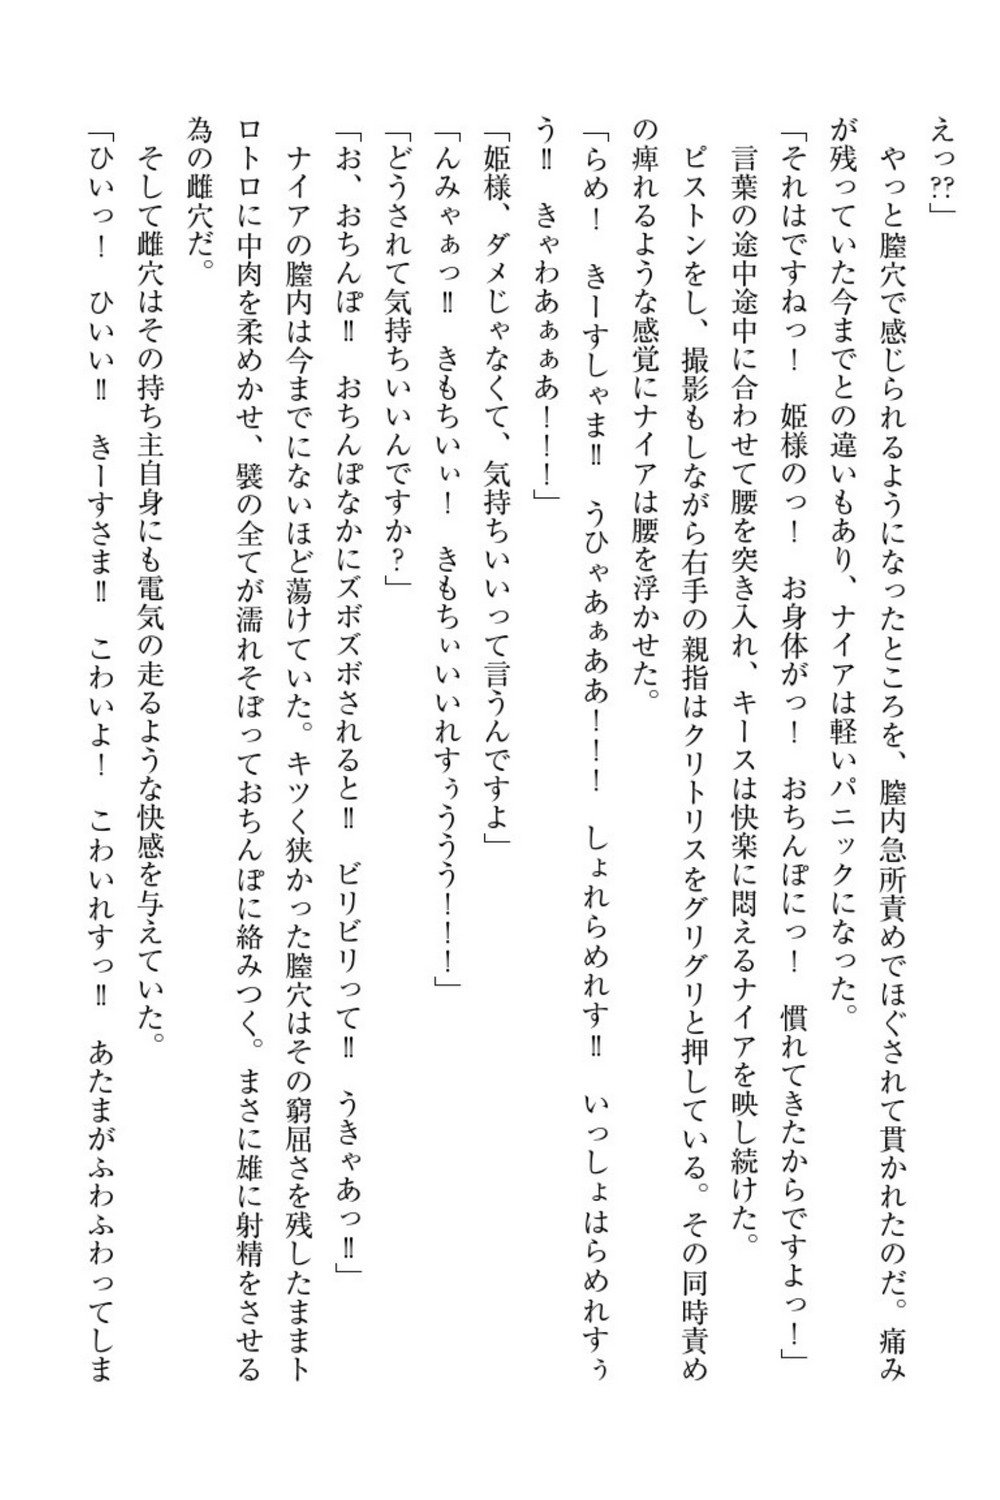 えっ??」
　やっと膣穴で感じられるようになったところを、膣内急所責めでほぐされて貫かれたのだ。痛み
が残っていた今までとの違いもあり、ナイアは軽いパニックになった。
「それはですねっ！　姫様のっ！　お身体がっ！　おちんぽにっ！　慣れてきたからですよっ！」
　言葉の途中途中に合わせて腰を突き入れ、キースは快楽に悶えるナイアを映し続けた。
　ピストンをし、撮影もしながら右手の親指はクリトリスをグリグリと押している。その同時責め
の痺れるような感覚にナイアは腰を浮かせた。
「らめ！　きーすしゃま‼　うひゃあぁああ！！！　しょれらめれす‼　いっしょはらめれすぅ
う‼　きゃわあぁぁあ！！！」
「姫様、ダメじゃなくて、気持ちいいって言うんですよ」
「んみゃぁっ‼　きもちいぃ！　きもちぃいいれすぅううう！！！」
「どうされて気持ちいいんですか？」
「お、おちんぽ‼　おちんぽなかにズボズボされると‼　ビリビリって‼　うきゃあっ‼」
　ナイアの膣内は今までにないほど蕩けていた。キツく狭かった膣穴はその窮屈さを残したままト
ロトロに中肉を柔めかせ、襞の全てが濡れそぼっておちんぽに絡みつく。まさに雄に射精をさせる
為の雌穴だ。
　そして雌穴はその持ち主自身にも電気の走るような快感を与えていた。
「ひいっ！　ひいい‼　きーすさま‼　こわいよ！　こわいれすっ‼　あたまがふわふわってしま